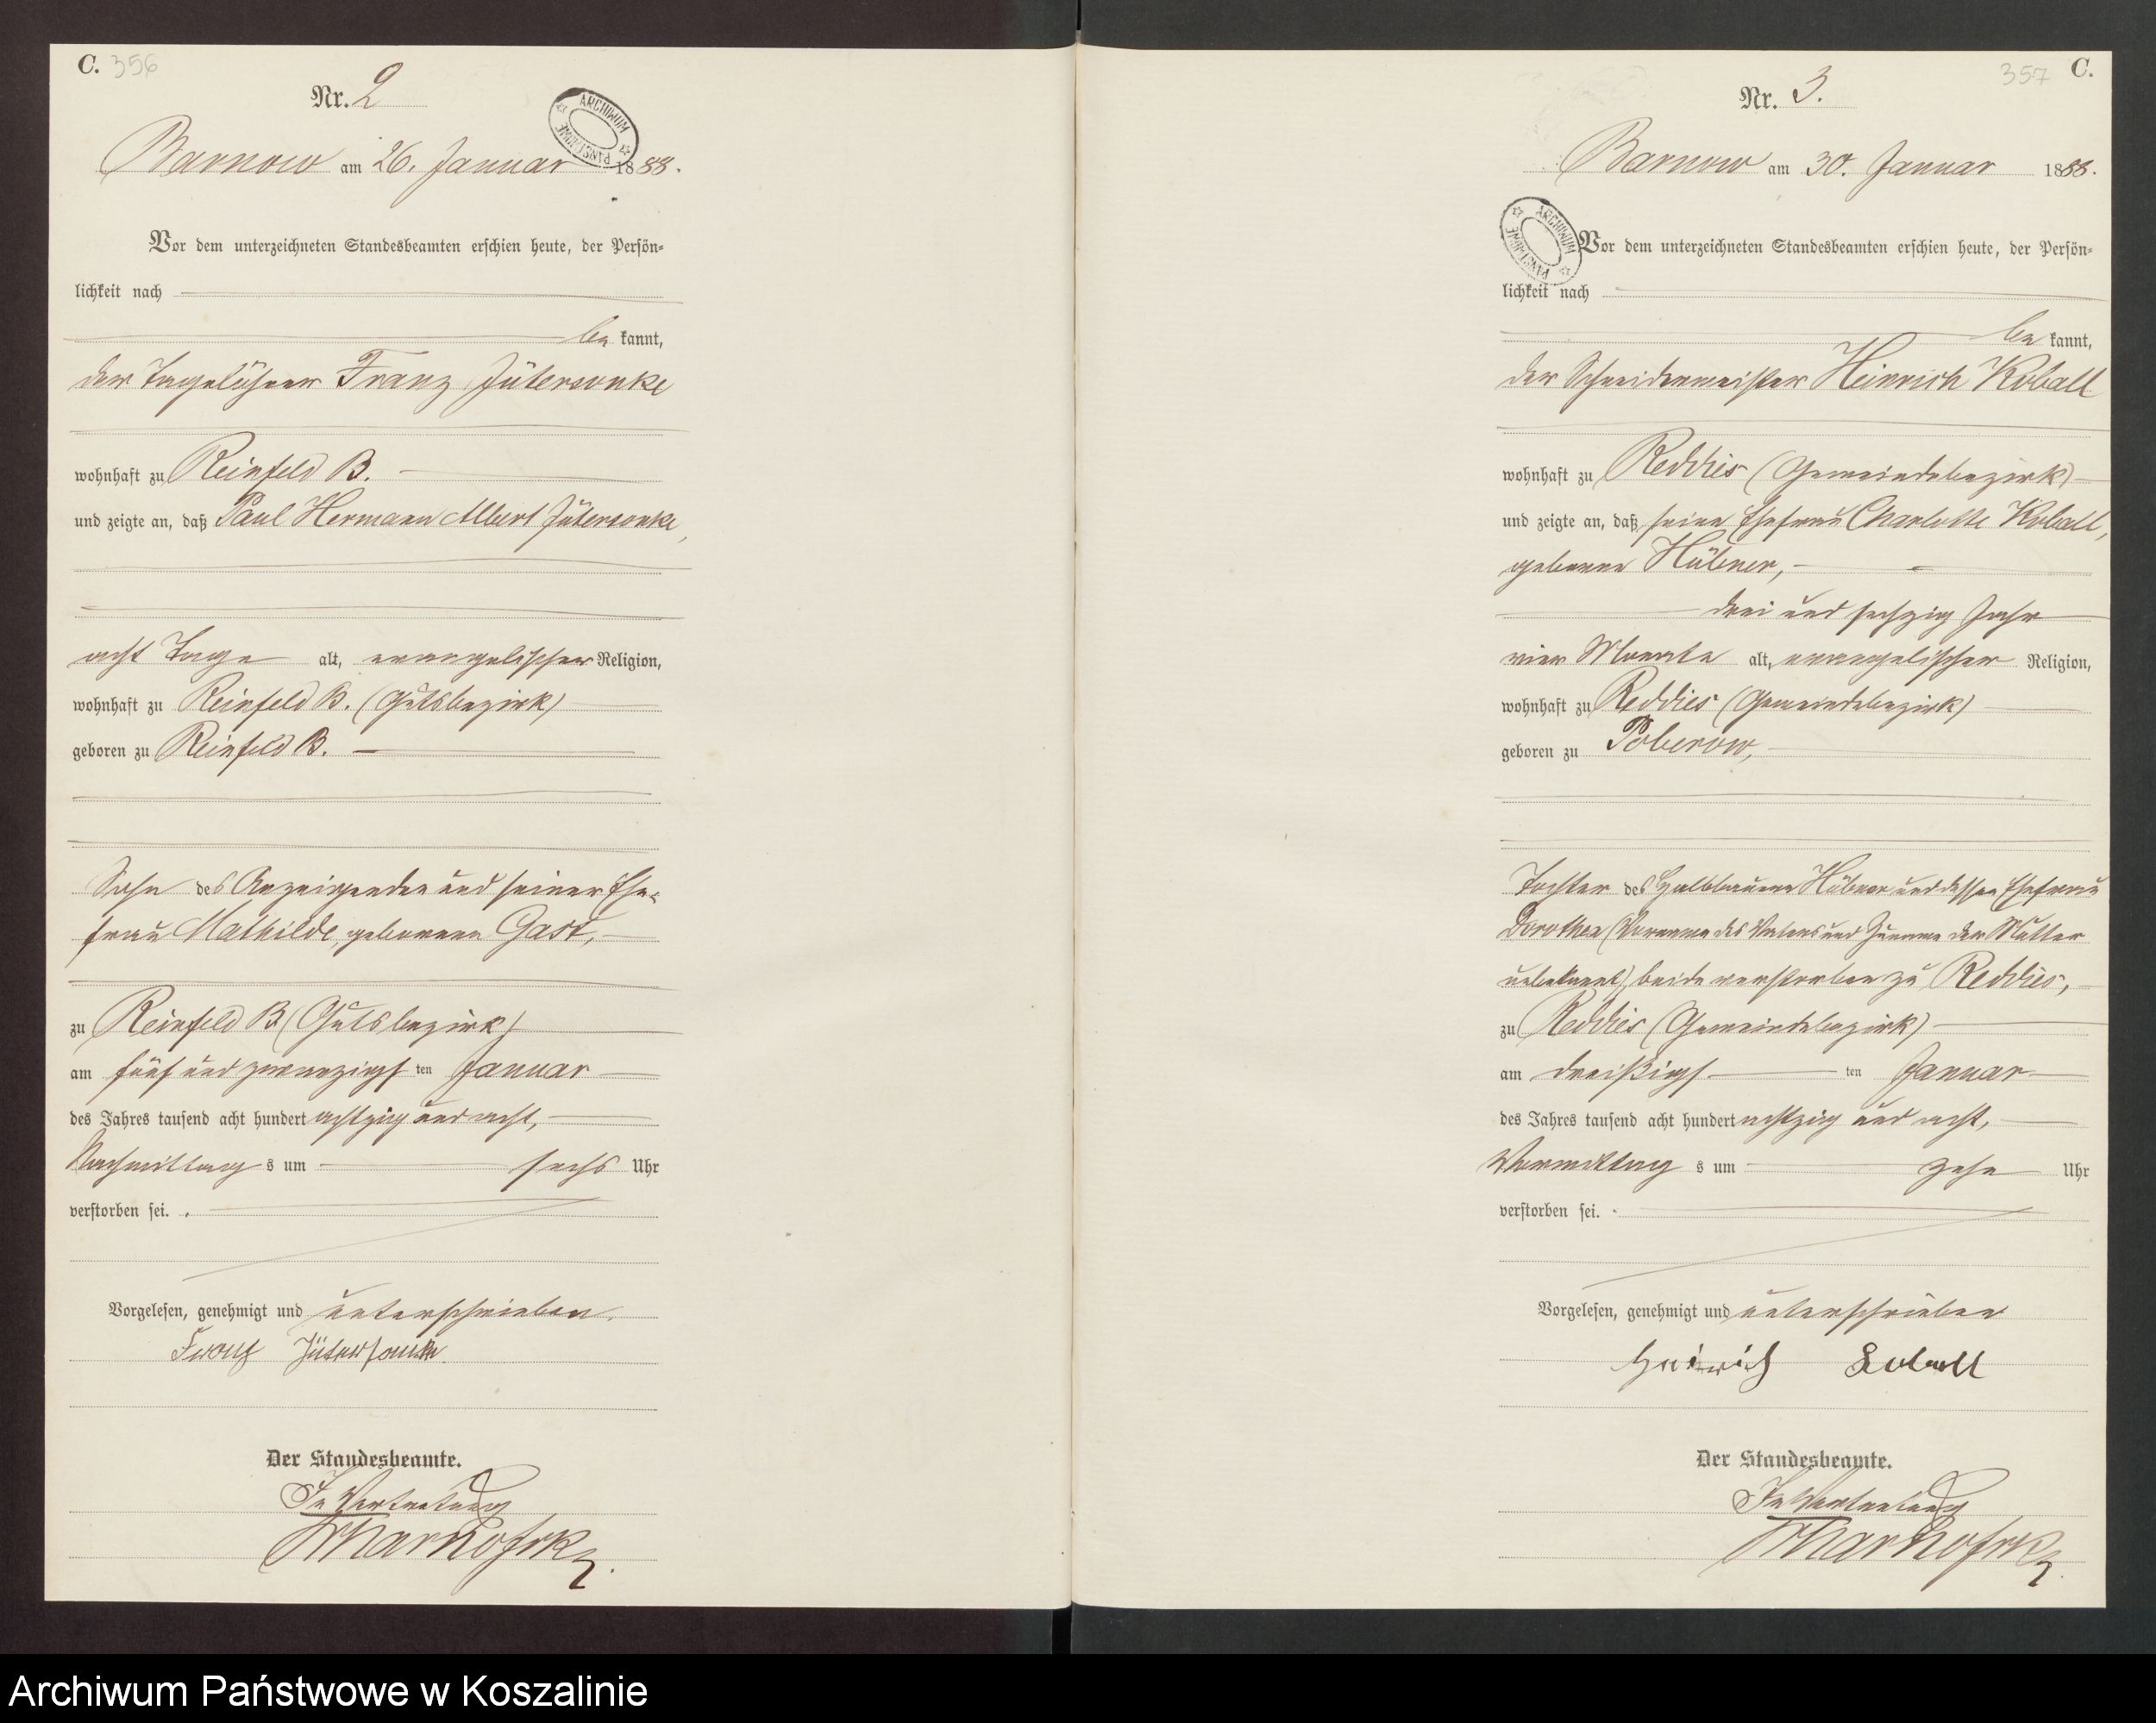 C. 356
Nr. 2
ARCHIWUM PAŃSTWOWE
Barnow am 26. Januar 1888.
Vor dem unterzeichneten Standesbeamten erschien heute, der Persön-
lichkeit nach
be kannt,
der Tagelöhner Franz Jütersonke
wohnhaft zu Reinfeld B.
und zeigte an, daß Paul Hermann Albert Jütersonke,
acht Tage alt, evangelischer Religion,
wohnhaft zu Reinfeld B. (Gutsbezirk)
geboren zu Reinfeld B.
Sohn des Anzeigenden und seiner Ehe-
frau Mathilde, geborenen Gast,
zu Reinfeld B. (Gutsbezirk)
am fünf und zwanzigsten Januar
des Jahres tausend acht hundert achtzig und acht,
Nachmittags um sechs Uhr
verstorben sei.
Vorgelesen, genehmigt und unterschrieben.
Franz Jütersonke
Der Standesbeamte.
In Vertretung
357 C.
Nr. 3.
Barnow am 30. Januar 1888.
ARCHIWUM PAŃSTWOWE
Vor dem unterzeichneten Standesbeamten erschien heute, der Persön-
lichkeit nach
be kannt,
der Schneidermeister Heinrich Koball
wohnhaft zu Reddies (Gemeindebezirk)
und zeigte an, daß seine Ehefrau Charlotte Koball,
geborene Hübner,
drei und sechzig Jahr
vier Monate alt, evangelischer Religion,
wohnhaft zu Reddies (Gemeindebezirk)
geboren zu Poberow,
Tochter des Halbbauern Hübner und dessen Ehefrau
Dorothea (Vorname des Vaters und Zuname der Mutter
unbekannt), beide verstorben zu Reddies,
zu Reddies (Gemeindebezirk)
am dreißigsten Januar
des Jahres tausend acht hundert achtzig und acht,
Vormittags um zehn Uhr
verstorben sei.
Vorgelesen, genehmigt und unterschrieben
Heinrich Koball
Der Standesbeamte.
In Vertretung
Archiwum Państwowe w Koszalinie